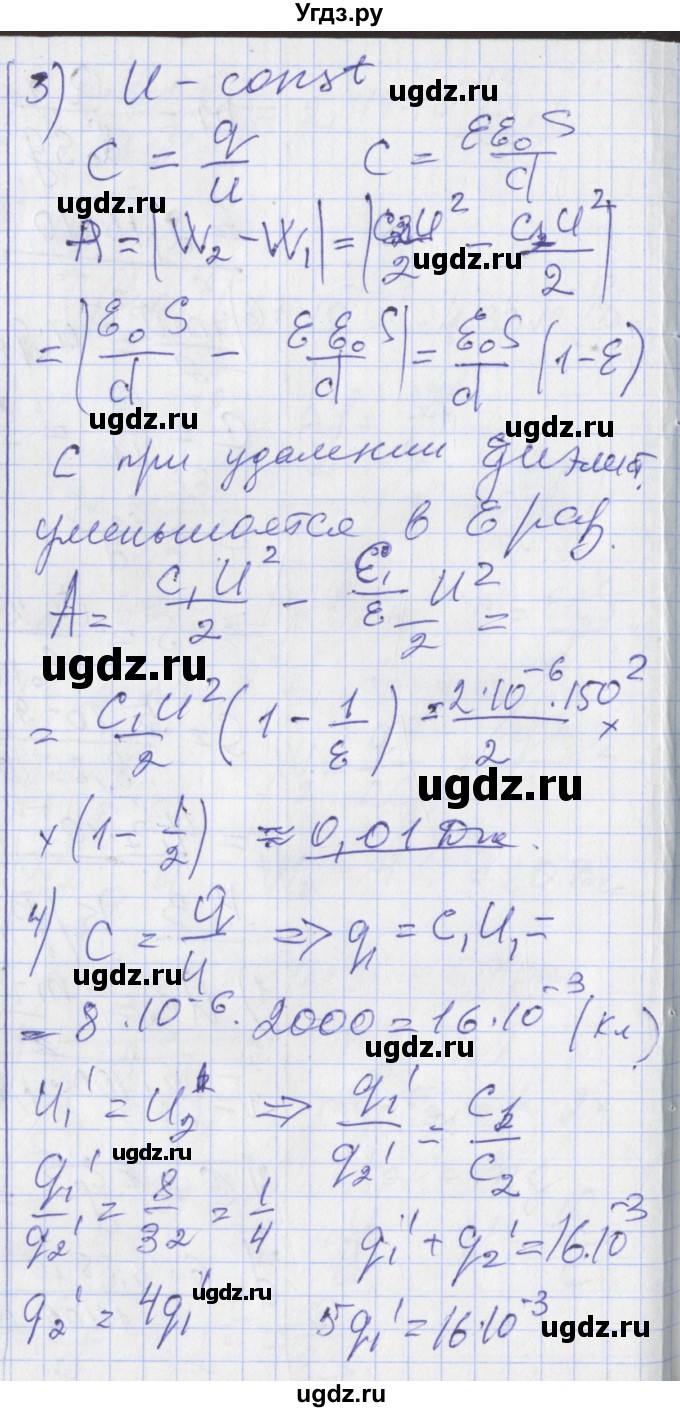 Угдз.ру
3) U - const
ugdz.ru
C = q/U C = εε₀S/d
ugdz.ru
A = |W₂ - W₁| = |C₂U²/2 - C₁U²/2|
ugdz.ru
= |ε₀S/d - εε₀S/d| = ε₀S/d (1-ε)
ugdz.ru ugdz.ru
C при удалении диэлит.
уменьшается в ε раз.
A = C₁U²/2 - C₁/ε U²/2 =
ugdz.ru
= C₁U²/2 (1 - 1/ε) = 2·10⁻⁶·150²/2 ×
ugdz.ru
× (1 - 1/2) ≈ 0,01 Дж.
4) C = q/U => q₁ = C₁U₁ =
ugdz.ru
= 8·10⁻⁶·2000 = 16·10⁻³ (Кл)
ugdz.ru
U₁' = U₂' => q₁'/q₂' = C₁/C₂
ugdz.ru
q₁'/q₂' = 8/32 = 1/4 q₁' + q₂' = 16·10⁻³
ugdz.ru
q₂' = 4q₁' 5q₁' = 16·10⁻³
ugdz.ru
ugdz.ru